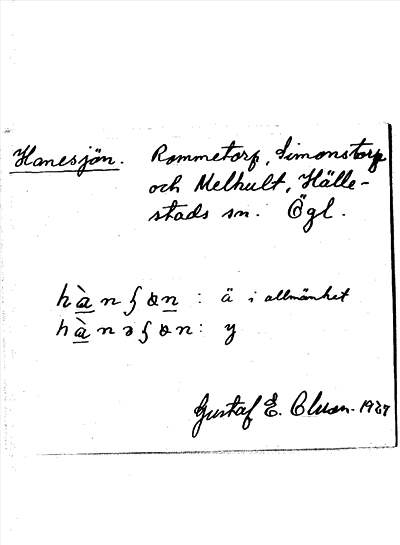 Hanesjön. Rommetorp, Simonstorp
och Melhult, Hälle-
stads sn. Ögl.
hàn ʃɵn : ä i allmänhet
hànəʃɵn: y
Gustaf E. 19